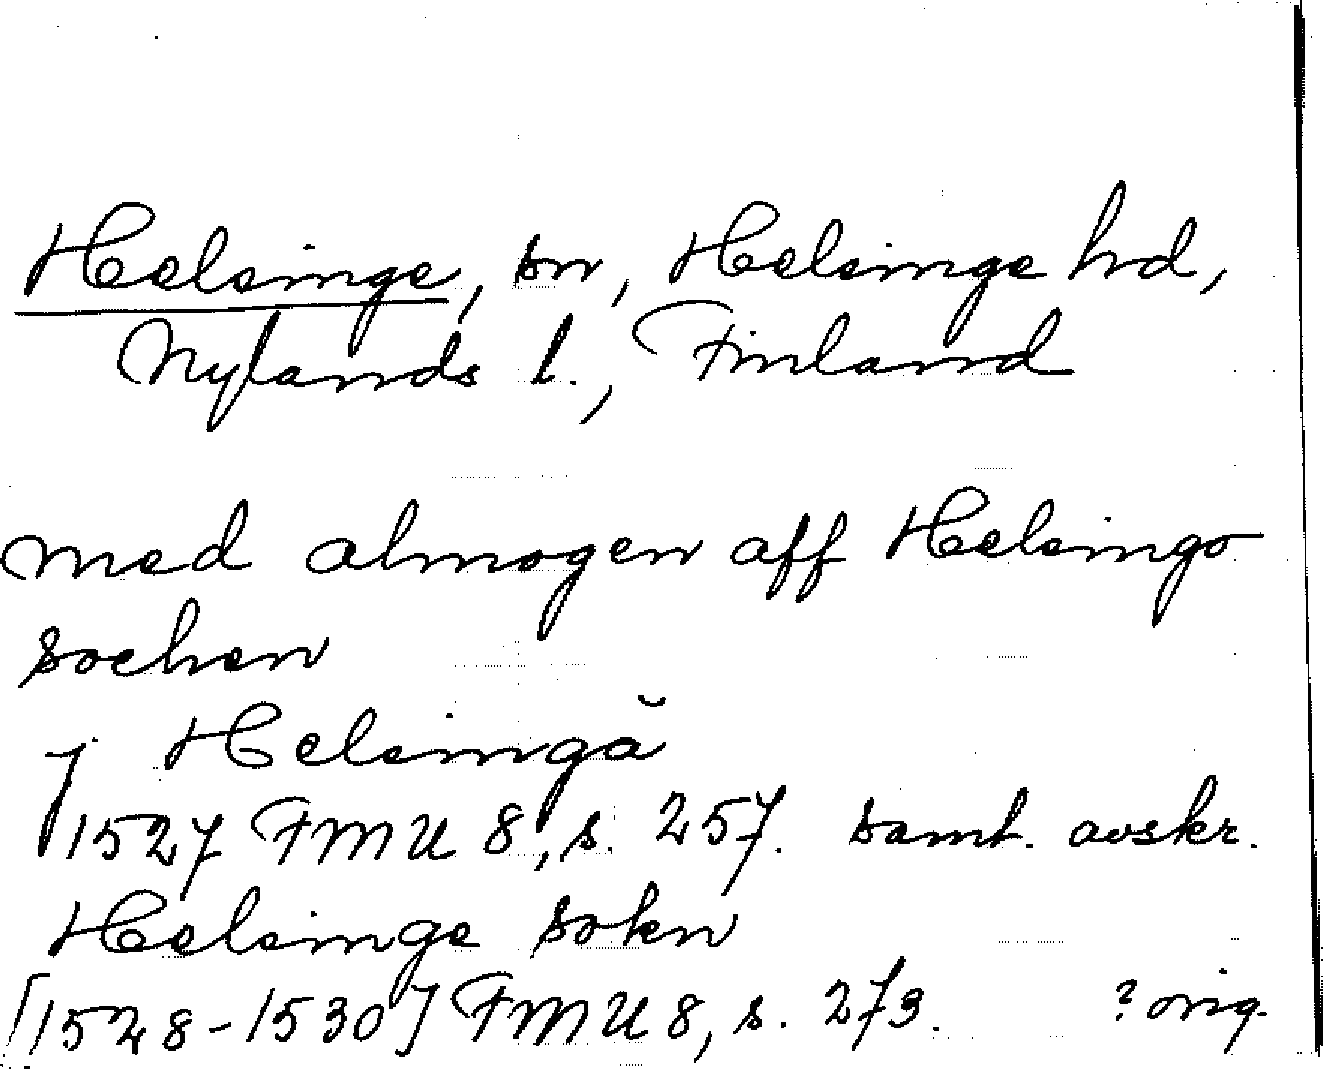 Helsinge, sn, Helsinge hd,
Nylands l., Finland
med almogen aff Helsingo
sochen
j Helsingå
1527 FMU 8, s. 257. samt. avskr.
Helsinge sokn
[1528-1530] FMU 8, s. 273. ? orig.